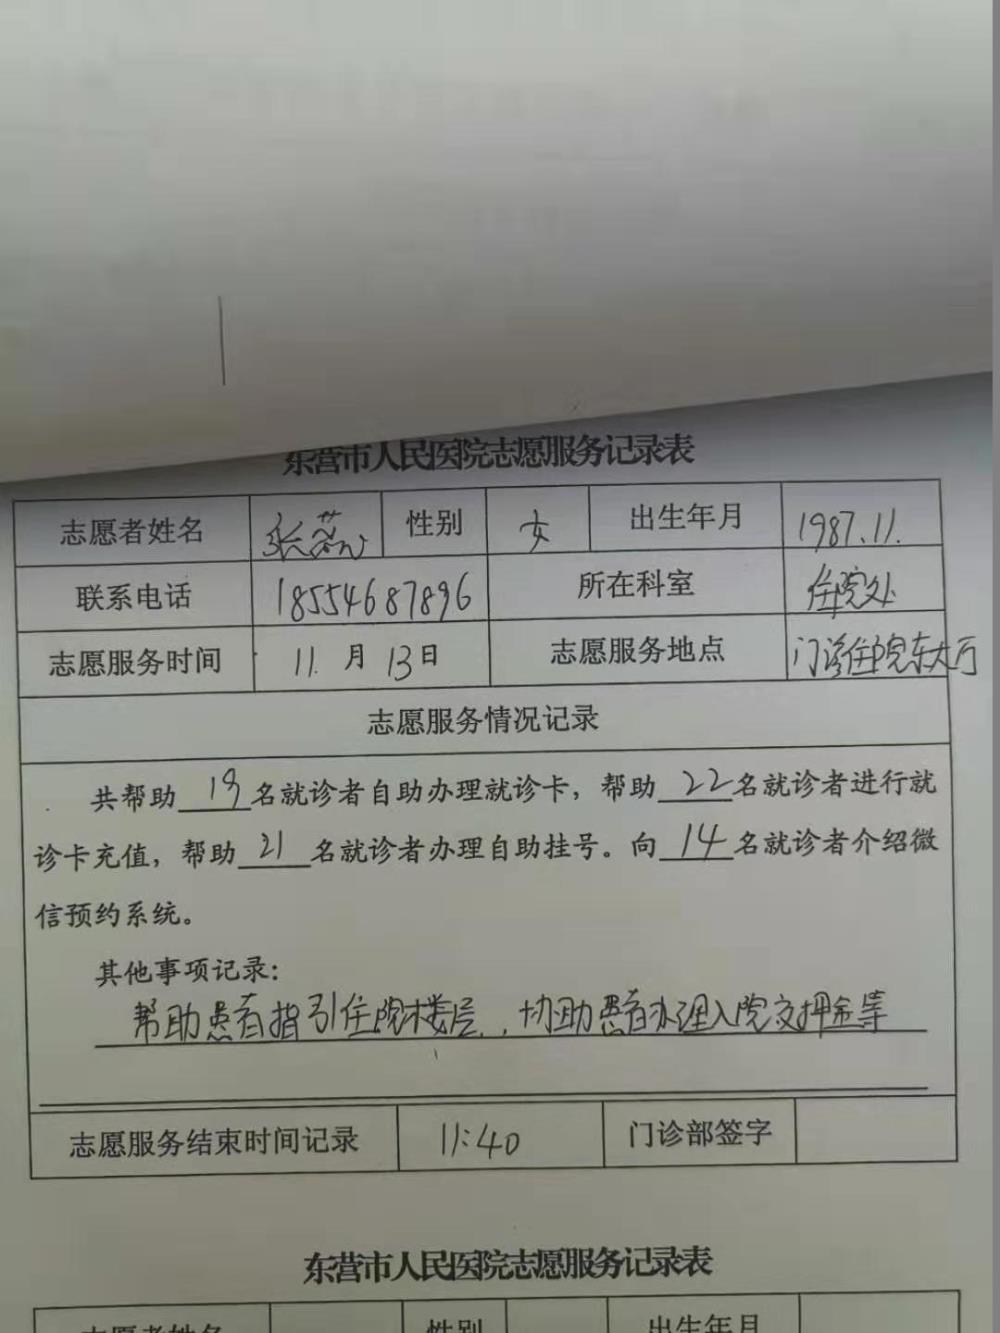 东营市人民医院志愿服务记录表
志愿者姓名 张 性别 女 出生年月 1987.11.
联系电话 18554687896 所在科室 住院处
志愿服务时间 11.月13日 志愿服务地点 门诊住院东大厅
志愿服务情况记录
共帮助19名就诊者自助办理就诊卡，帮助22名就诊者进行就
诊卡充值，帮助21名就诊者办理自助挂号。向14名就诊者介绍微
信预约系统。
其他事项记录：
帮助患者指引住院楼层，协助患者办理入院交押金等
志愿服务结束时间记录 11:40 门诊部签字
东营市人民医院志愿服务记录表
志愿者姓名 性别 出生年月